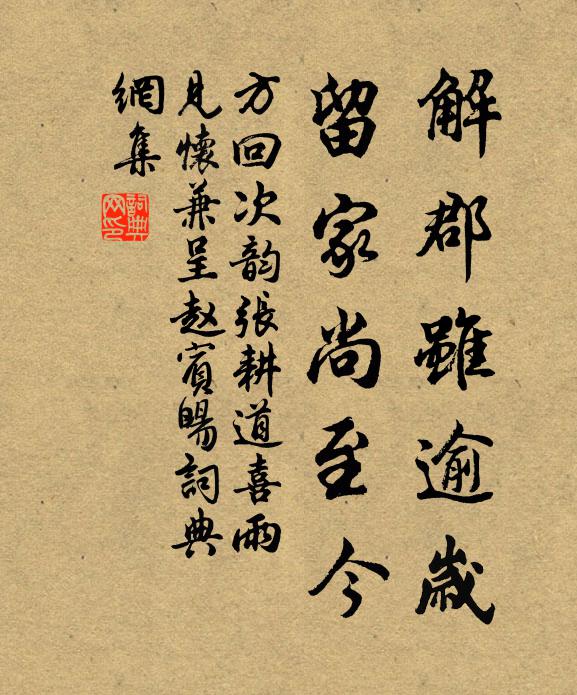 解郡雖逾歲
留家尚至今
方回次韵張耕道喜雨
見懷兼呈赵賓暘詞典
網集
詞典
网印